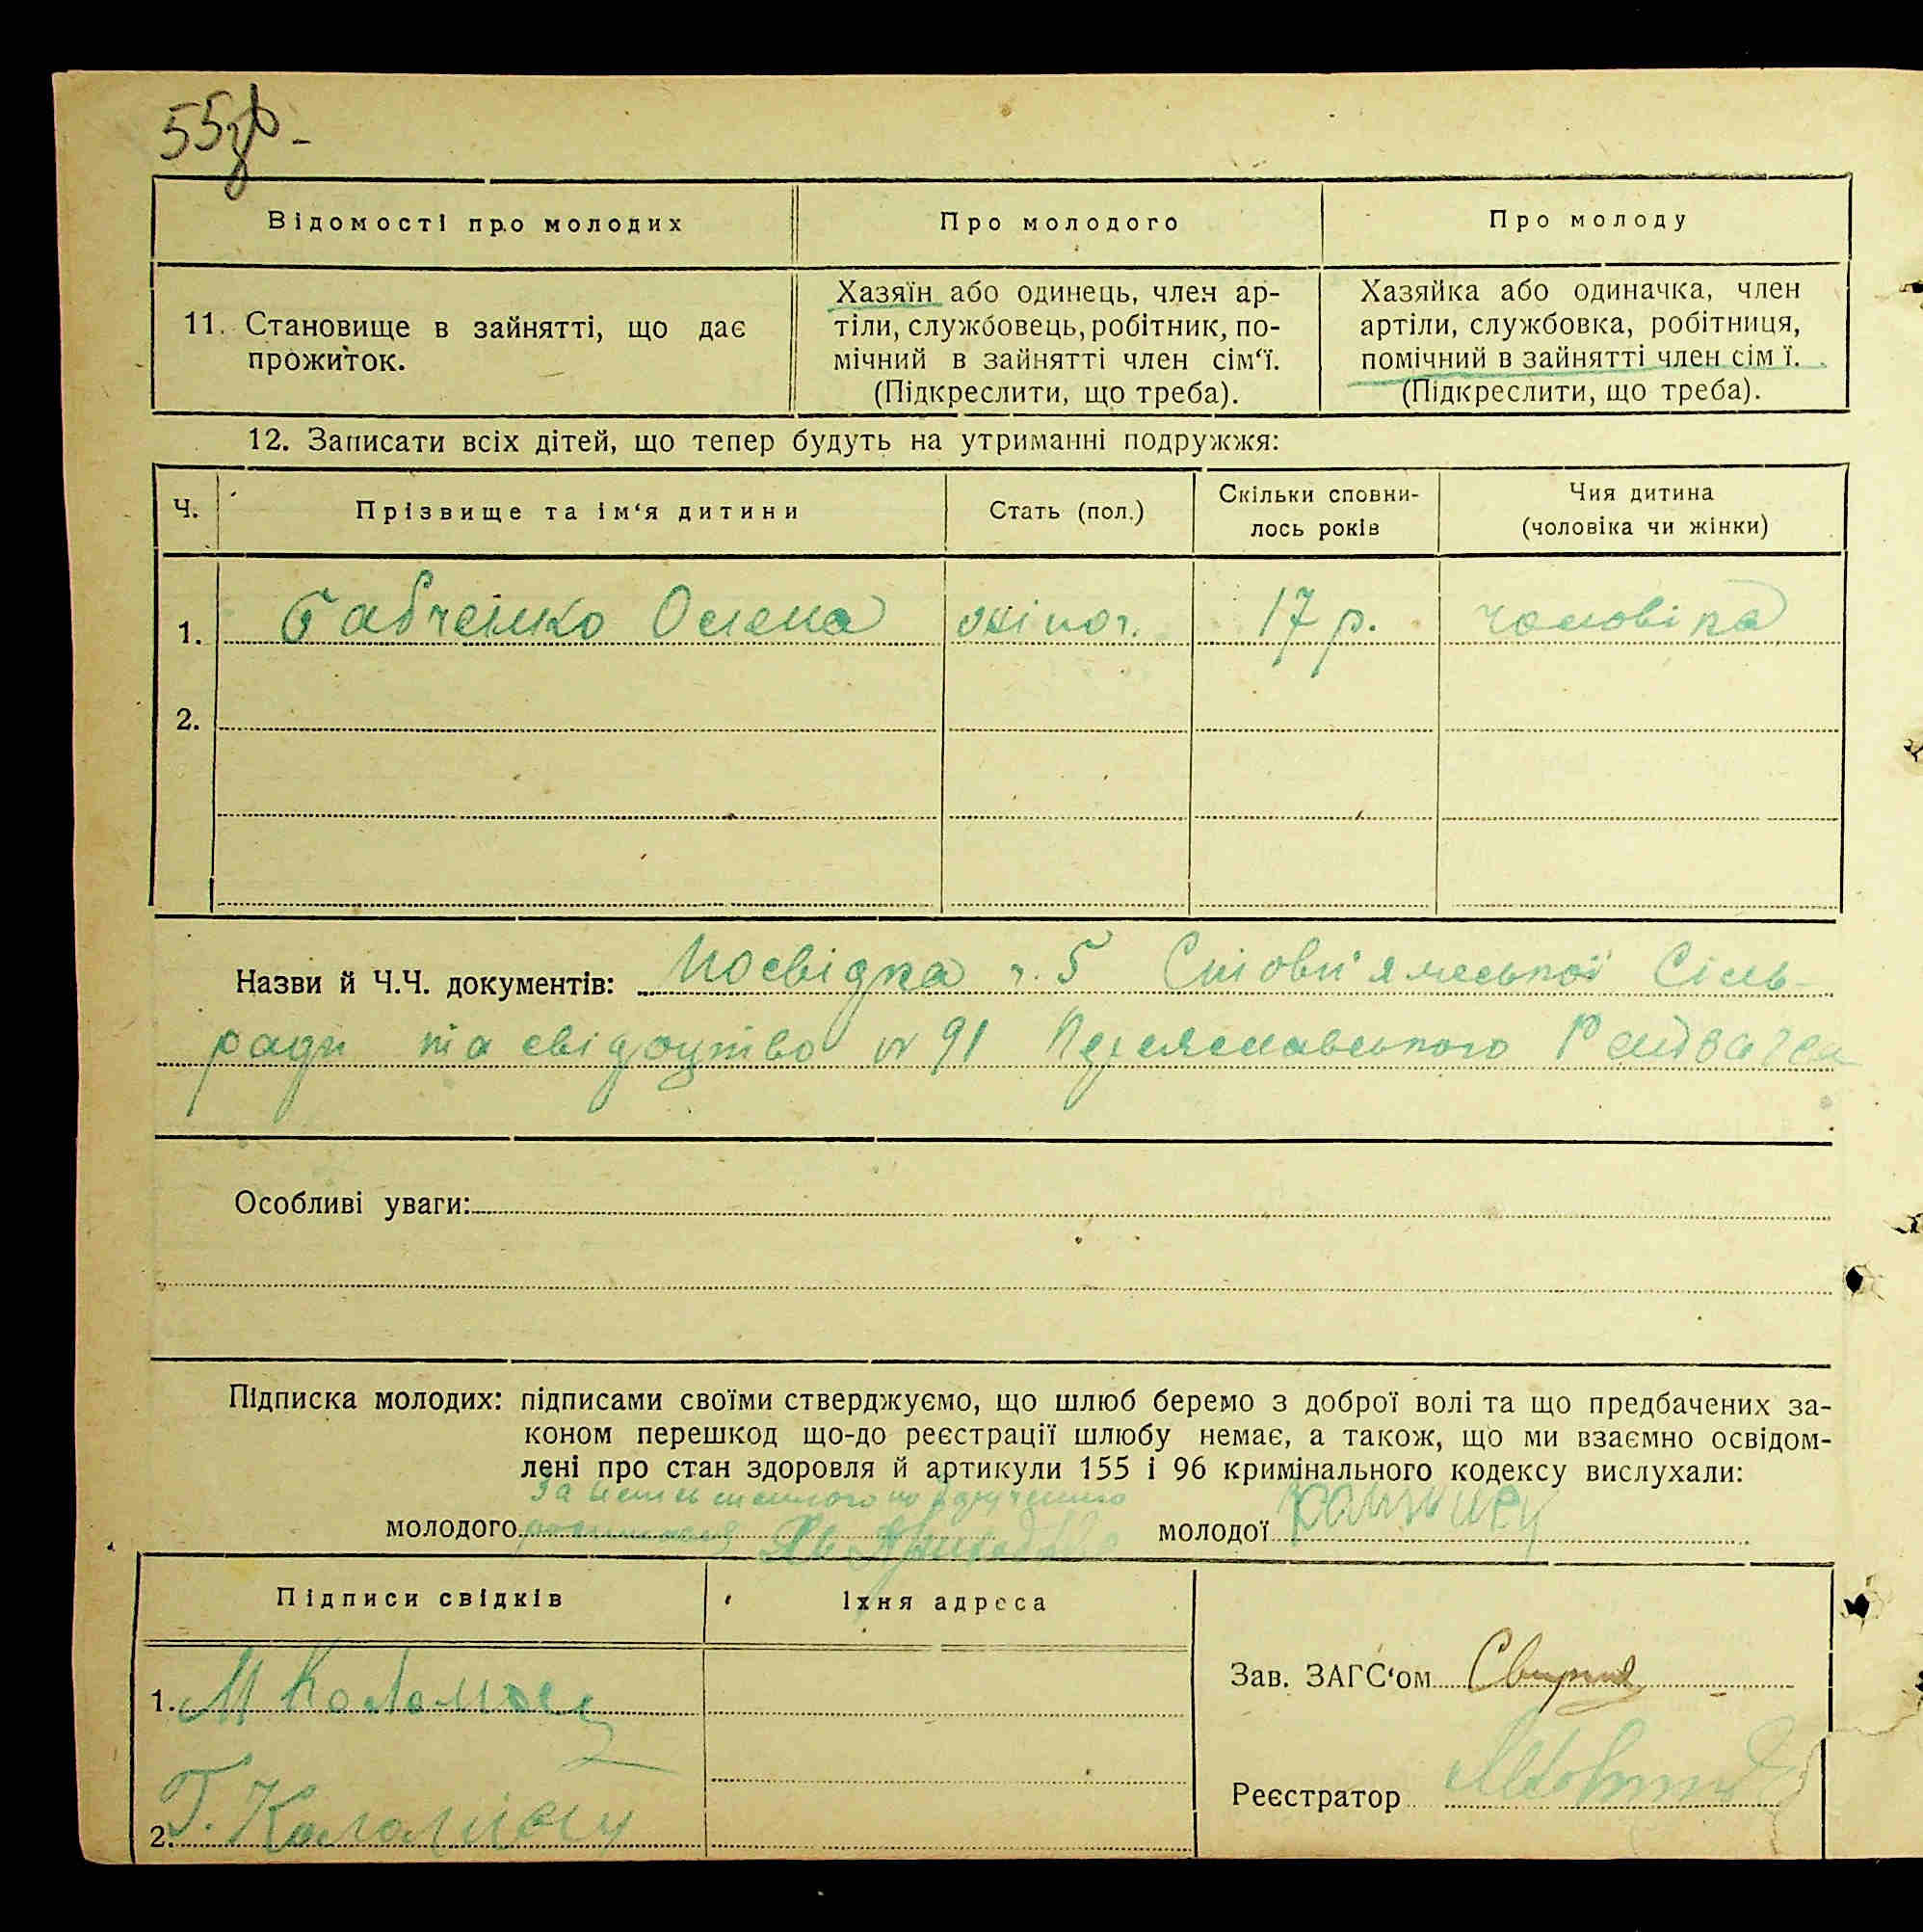 55зв-
Відомості про молодих
Про молодого
Про молоду
11. Становище в зайнятті, що дає
прожиток.
Хазяїн або одинець, член ар-
тіли, службовець, робітник, по-
мічний в зайнятті член сім‘ї.
(Підкреслити, що треба).
Хазяйка або одиначка, член
артіли, службовка, робітниця,
помічний в зайнятті член сім ї.
(Підкреслити, що треба).
12. Записати всіх дітей, що тепер будуть на утриманні подружжя:
Ч.
Прізвище та ім‘я дитини
Стать (пол.)
Скільки сповни-
лось років
Чия дитина
(чоловіка чи жінки)
1. Бабченко Олена жіноч. 17 р. чоловіка
2.
Назви й Ч.Ч. документів: Посвідка ч. 5 Стовп'язької Сіль-
ради та свідоцтво № 91 Переяславського Райзагса
Особливі уваги:
Підписка молодих: підписами своїми стверджуємо, що шлюб беремо з доброї волі та що предбачених за-
коном перешкод що-до реєстрації шлюбу немає, а також, що ми взаємно освідом-
лені про стан здоровля й артикули 155 і 96 кримінального кодексу вислухали:
За
молодого
молодої
Підписи свідків
Їхня адреса
1. М Коломієц
2. Г. Коломієц
Зав. ЗАГС‘ом
Реєстратор